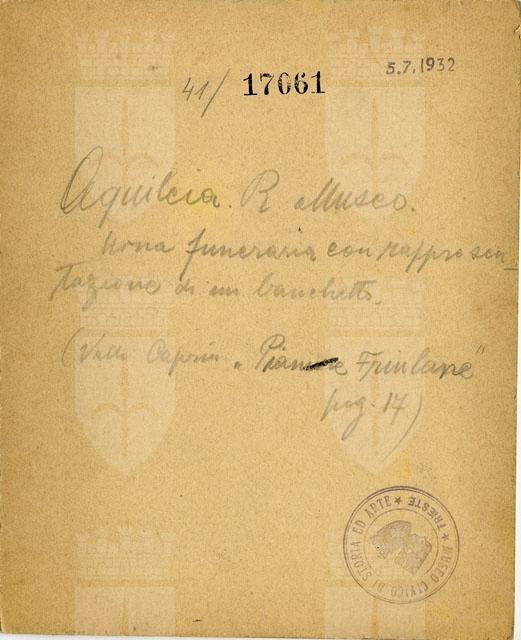 41/ 17061
5.7.1932
Aquileia. R. Museo.
Urna funeraria con rappresen-
tazione di un banchetto.
(Vedi Caprin „Pianure Friulane"
pag. 17)
MUSEO CIVICO DI STORIA ED ARTE ★ TRIESTE ★